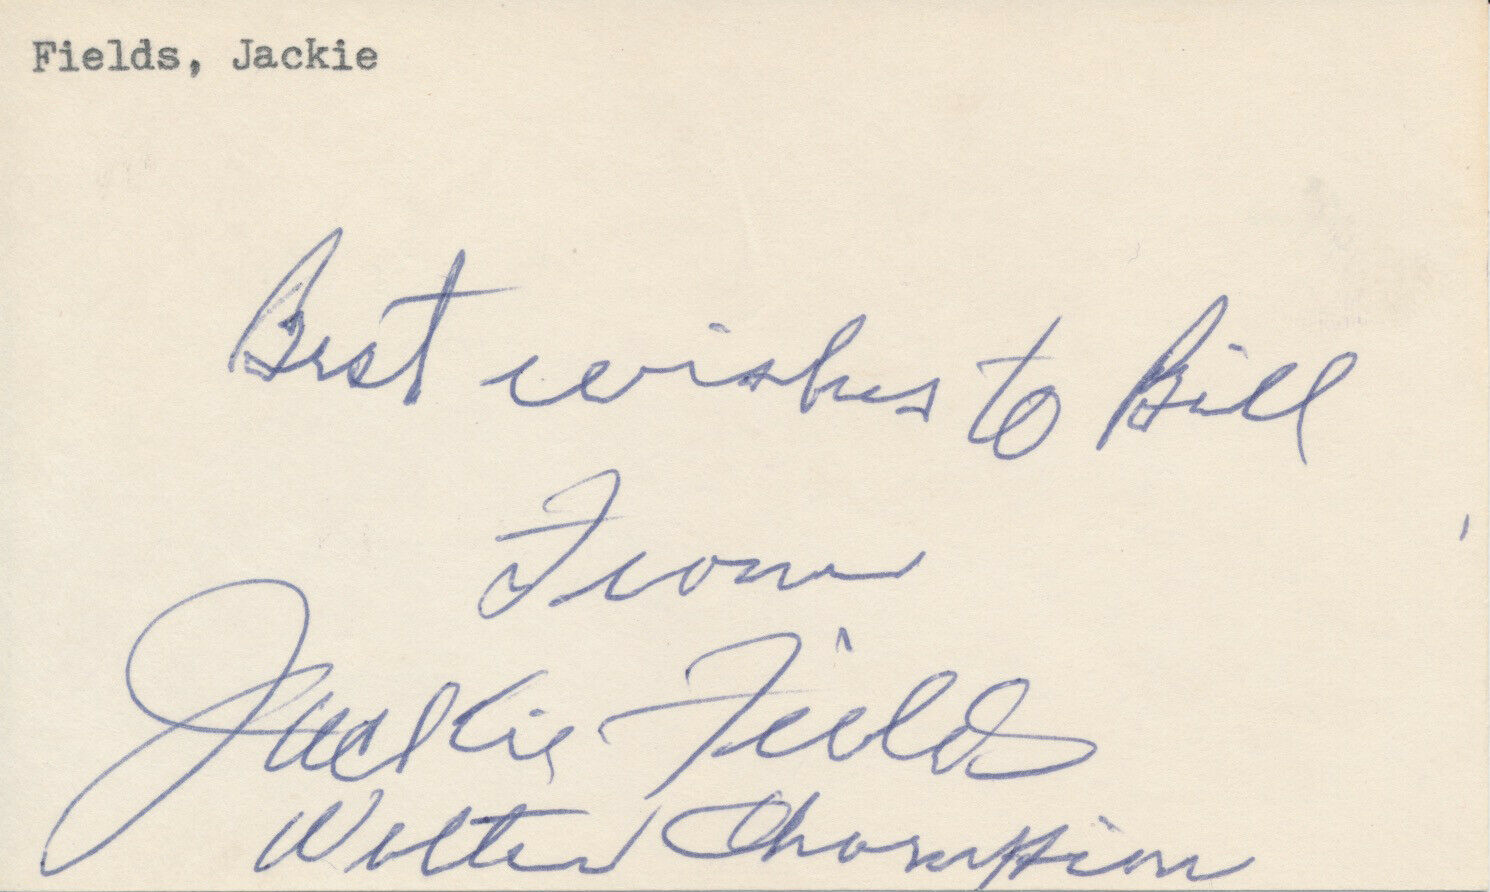 Fields, Jackie
Best wishes to Bill
From
Jackie Fields
Welter Champion